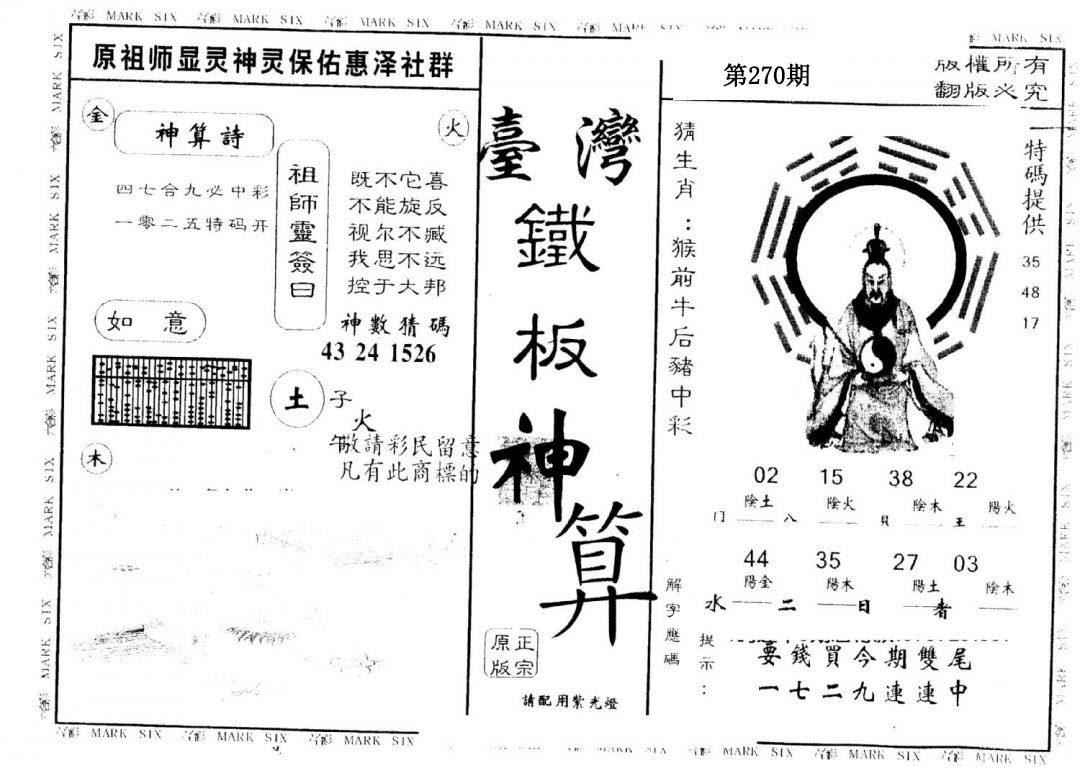 MARK SIX
原祖师显灵神灵保佑惠泽社群
金
神算詩
火
四七合九必中彩
一零二五特码开
祖師靈簽曰
既不它喜
不能旋反
视尔不臧
我思不远
控于大邦
如意
神數猜碼
43 24 1526
土
子
火
午敬請彩民留意
凡有此商標的
木
臺灣
鐵
板
神
算
正宗
原版
請配用紫光燈
第270期
版權所有
翻版必究
猜生肖：猴前牛后豬中彩
特碼提供
35
48
17
02 15 38 22
陰土 陰火 陰木 陽火
门 八 貝 王
44 35 27 03
陽金 陽木 陽土 陰木
水 二 日 者
解字應碼
提示：
要錢買今期雙尾
一七二九連連中